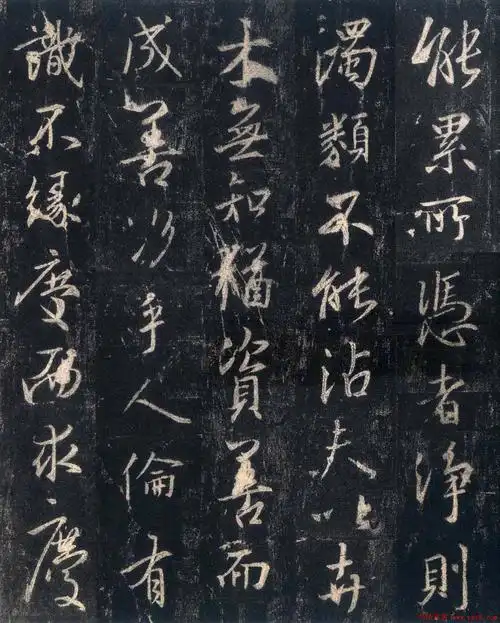 能累所憑者浄則
濁類不能沾夫以卉
木無知猶資善而
成善況乎人倫有
識不緣慶而求慶